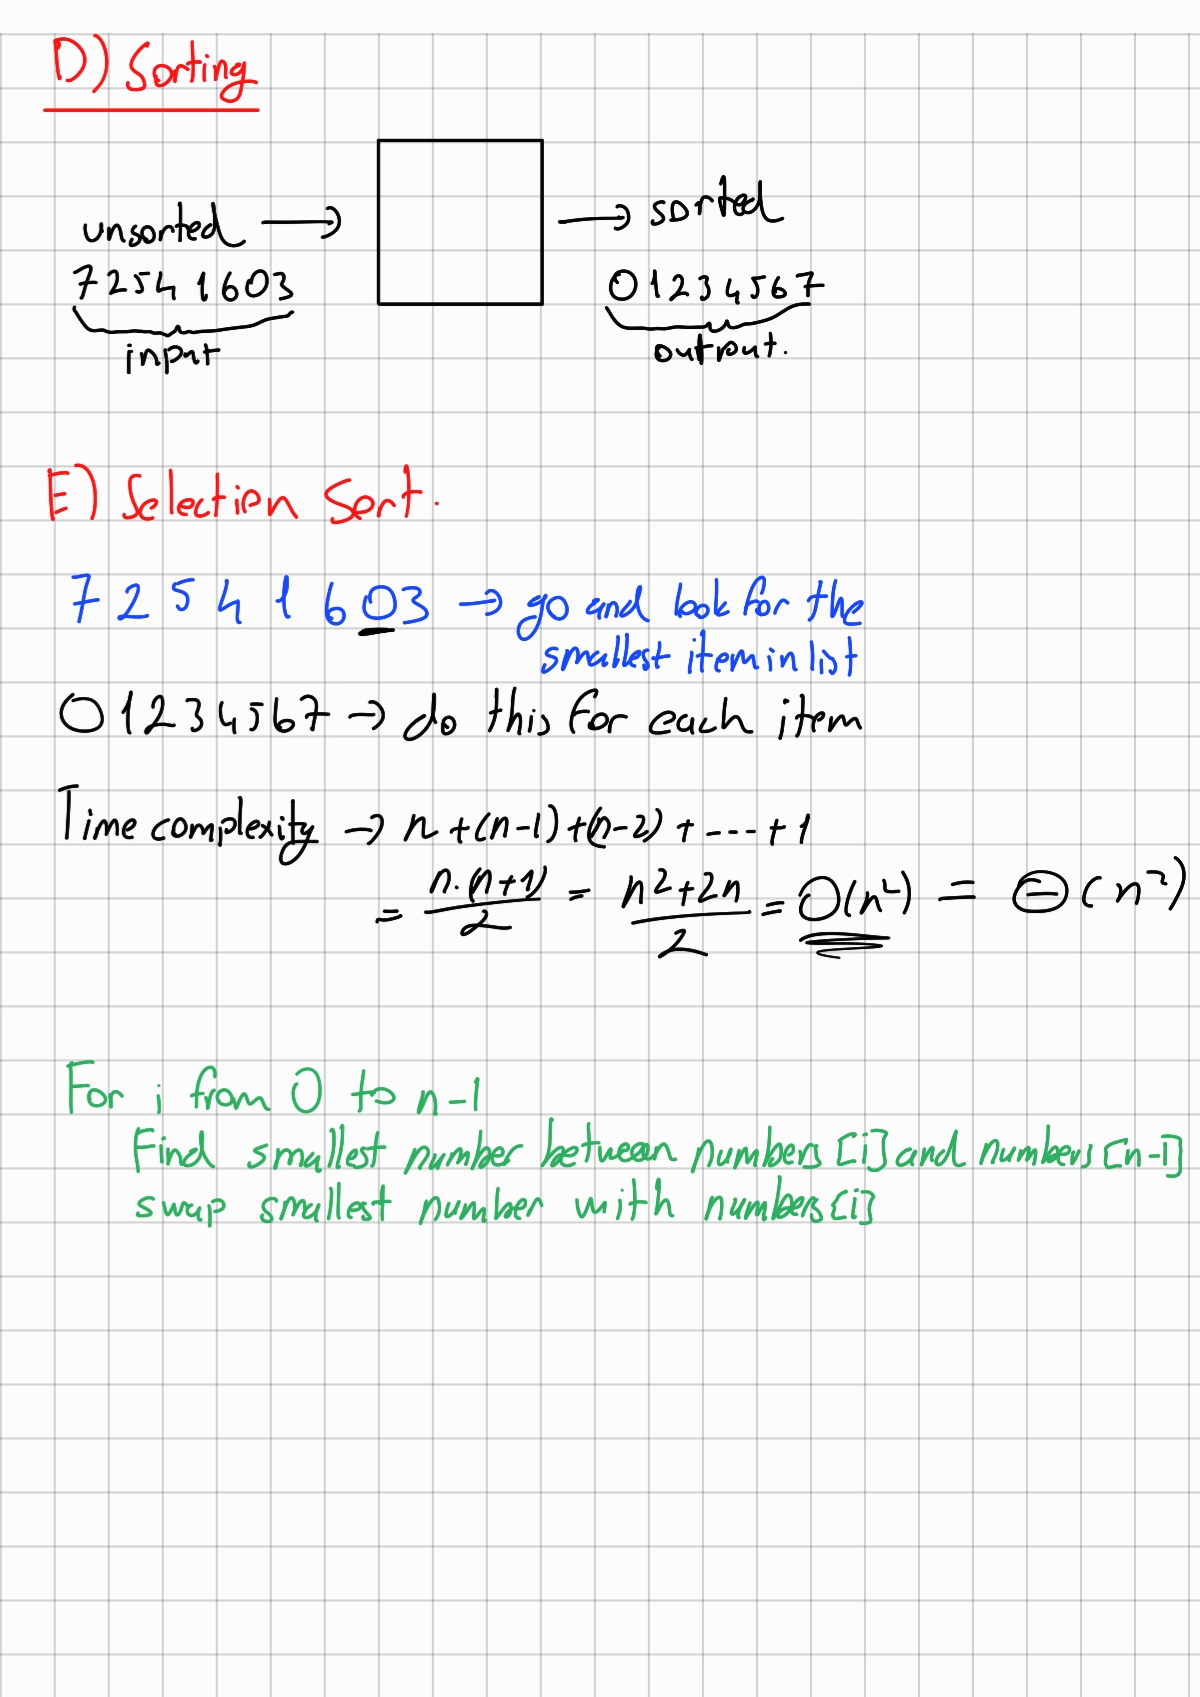 D) Sorting
unsorted → → sorted
7 2 5 4 1 6 0 3 0 1 2 3 4 5 6 7
input output.
E) Selection Sort.
7 2 5 4 1 6 0 3 → go and look for the
smallest item in list
0 1 2 3 4 5 6 7 → do this for each item
Time complexity → n + (n-1) + (n-2) + ---- + 1
= n.(n+1)/2 = n²+2n/2 = O(n²) = Θ(n²)
For i from 0 to n-1
Find smallest number between numbers[i] and numbers[n-1]
swap smallest number with numbers[i]